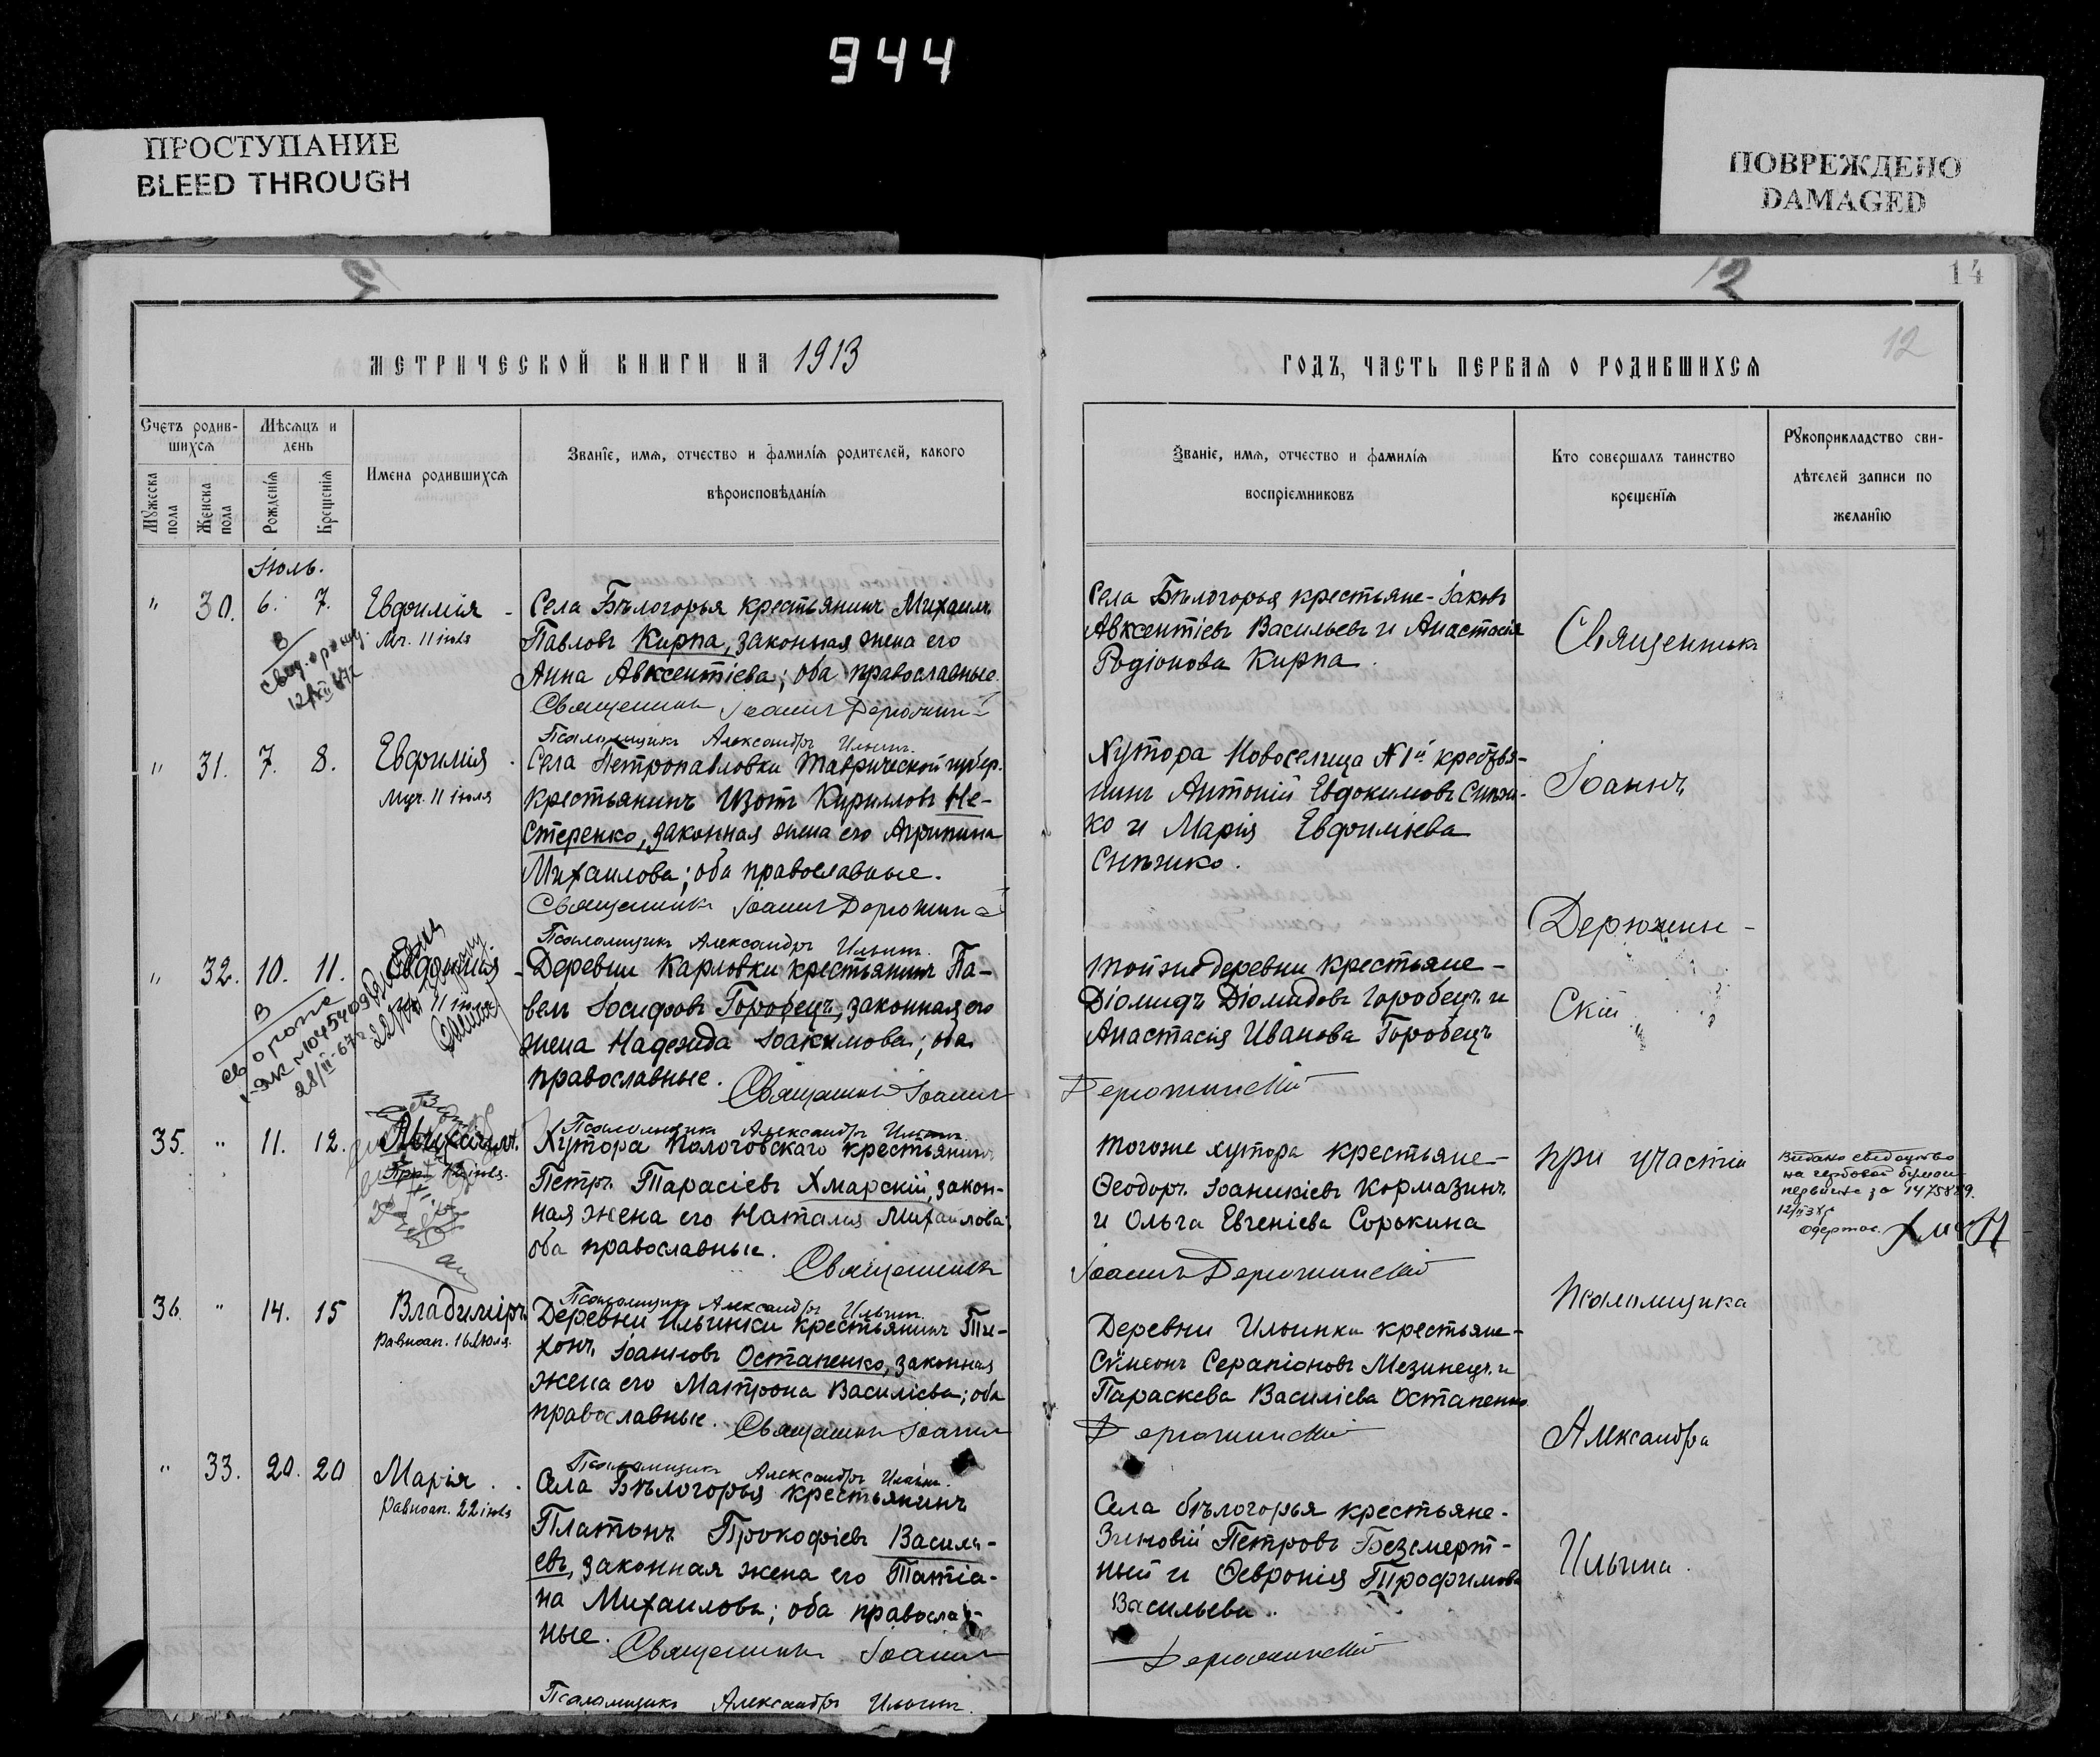 944
ПРОСТУПАНИЕ
BLEED THROUGH
ПОВРЕЖДЕНО
DAMAGED
12
14
12
МЕТРИЧЕСКОЙ КНИГИ НА 1913
ГОДЪ, ЧАСТЬ ПЕРВАЯ О РОДИВШИХСЯ
Счетъ родив-
шихся
Мѣсяцъ и
день
Мужеска
пола
Женска
пола
Рожденія
Крещенія
Имена родившихся
Званіе, имя, отчество и фамилія родителей, какого
вѣроисповѣданія
Званіе, имя, отчество и фамилія
воспріемниковъ
Кто совершалъ таинство
крещенія
Рукоприкладство сви-
дѣтелей записи по
желанію
Іюль.
" 30. 6. 7. Евфимія
Мч. 11 іюля
Села Бѣлогорья крестьянинъ Михаилъ
Павловъ Кирпа, законная жена его
Анна Авксентіева; оба православные.
Священникъ Іоаннъ Дерюжин-
Псаломщикъ Александръ Ильинъ.
Села Бѣлогорья крестьяне - Іаковъ
Авксентіевъ Васильевъ и Анастасія
Родіонова Кирпа.
Священникъ
" 31. 7. 8. Евфимія
Муч. 11 іюля
Села Петропавловки Таврической губер.
крестьянинъ Изотъ Кирилловъ Не-
стеренко, законная жена его Агрипина
Михаилова; оба православные.
Священникъ Іоаннъ Дерюжин
Псаломщикъ Александръ Ильинъ.
Хутора Новоселица №1й крестья-
нинъ Антоній Евдокимовъ
ко и Марія Евфиміева
Іоаннъ
Дерюжин-
" 32. 10. 11. Евфимія
11 іюля
Деревни Карловки крестьянинъ Па-
велъ Іосифовъ Горобецъ, законная его
жена Надежда Іоакимова; оба
православные. Священникъ Іоаннъ
Псаломщикъ Александръ Ильинъ.
28/III-67
Той же деревни крестьяне -
Діомидъ Діомидовъ Горобецъ и
Анастасія Иванова Горобецъ
Дерюжинскій
скій
35. " 11. 12. Михаилъ.
Преп. 12 іюля.
Хутора Пологовскаго крестьянинъ
Петръ Тарасіевъ Хмарскій, закон-
ная жена его Наталія Михаилова
оба православные. Священникъ
Псаломщикъ Александръ Ильинъ.
Того же хутора крестьяне -
Ѳеодоръ Іоанникіевъ Кормазинъ
и Ольга Евгеніева Сорокина
Іоаннъ Дерюжинскій
при участіи
36. " 14. 15 Владиміръ
Равноап. 15 іюля.
Деревни Ильинки крестьянинъ Ти-
хонъ Іоанновъ Остапенко, законная
жена его Матрона Василіева; оба
православные. Священникъ Іоаннъ
Псаломщикъ Александръ Ильинъ.
Деревни Ильинки крестьяне -
Сѵмеонъ Серапіоновъ Мезинецъ и
Параскева Василіева Остапенко
Дерюжинскій
псаломщика
Александра
" 33. 20. 20 Марія
Равноап. 22 іюля
Села Бѣлогорья крестьянинъ
Платонъ Прокофіевъ Василь-
евъ, законная жена его Татіа-
на Михаилова; оба православ-
ные. Священникъ Іоаннъ
Псаломщикъ Александръ Ильинъ.
Села Бѣлогорья крестьяне -
Зиновій Петровъ Безсмерт-
ный и Ѳевронія Трофимова
Васильева.
Дерюжинскій
Ильина.